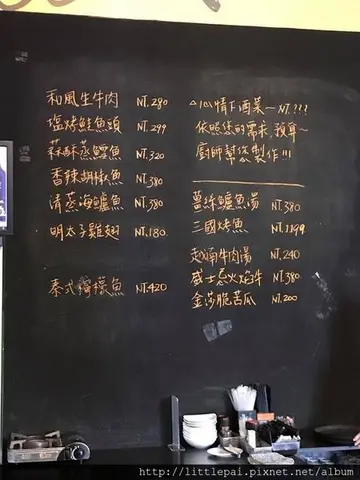 和風生牛肉 NT.280
塩烤鮭魚頭 NT.299
蒜酥蒸鱈魚 NT.320
香辣胡椒魚 NT.380
清蒸海鱸魚 NT.380
明太子雞翅 NT.180
泰式檸檬魚 NT.420
心情下酒菜～NT.???
依照您的需求、預算～
廚師幫您製作!!!
薑絲鱸魚湯 NT.380
三國烤魚 NT.1199
越南牛肉湯 NT.240
威士忌火焰牛 NT.380
金莎脆苦瓜 NT.200
http://littlepai.pixnet.net/album